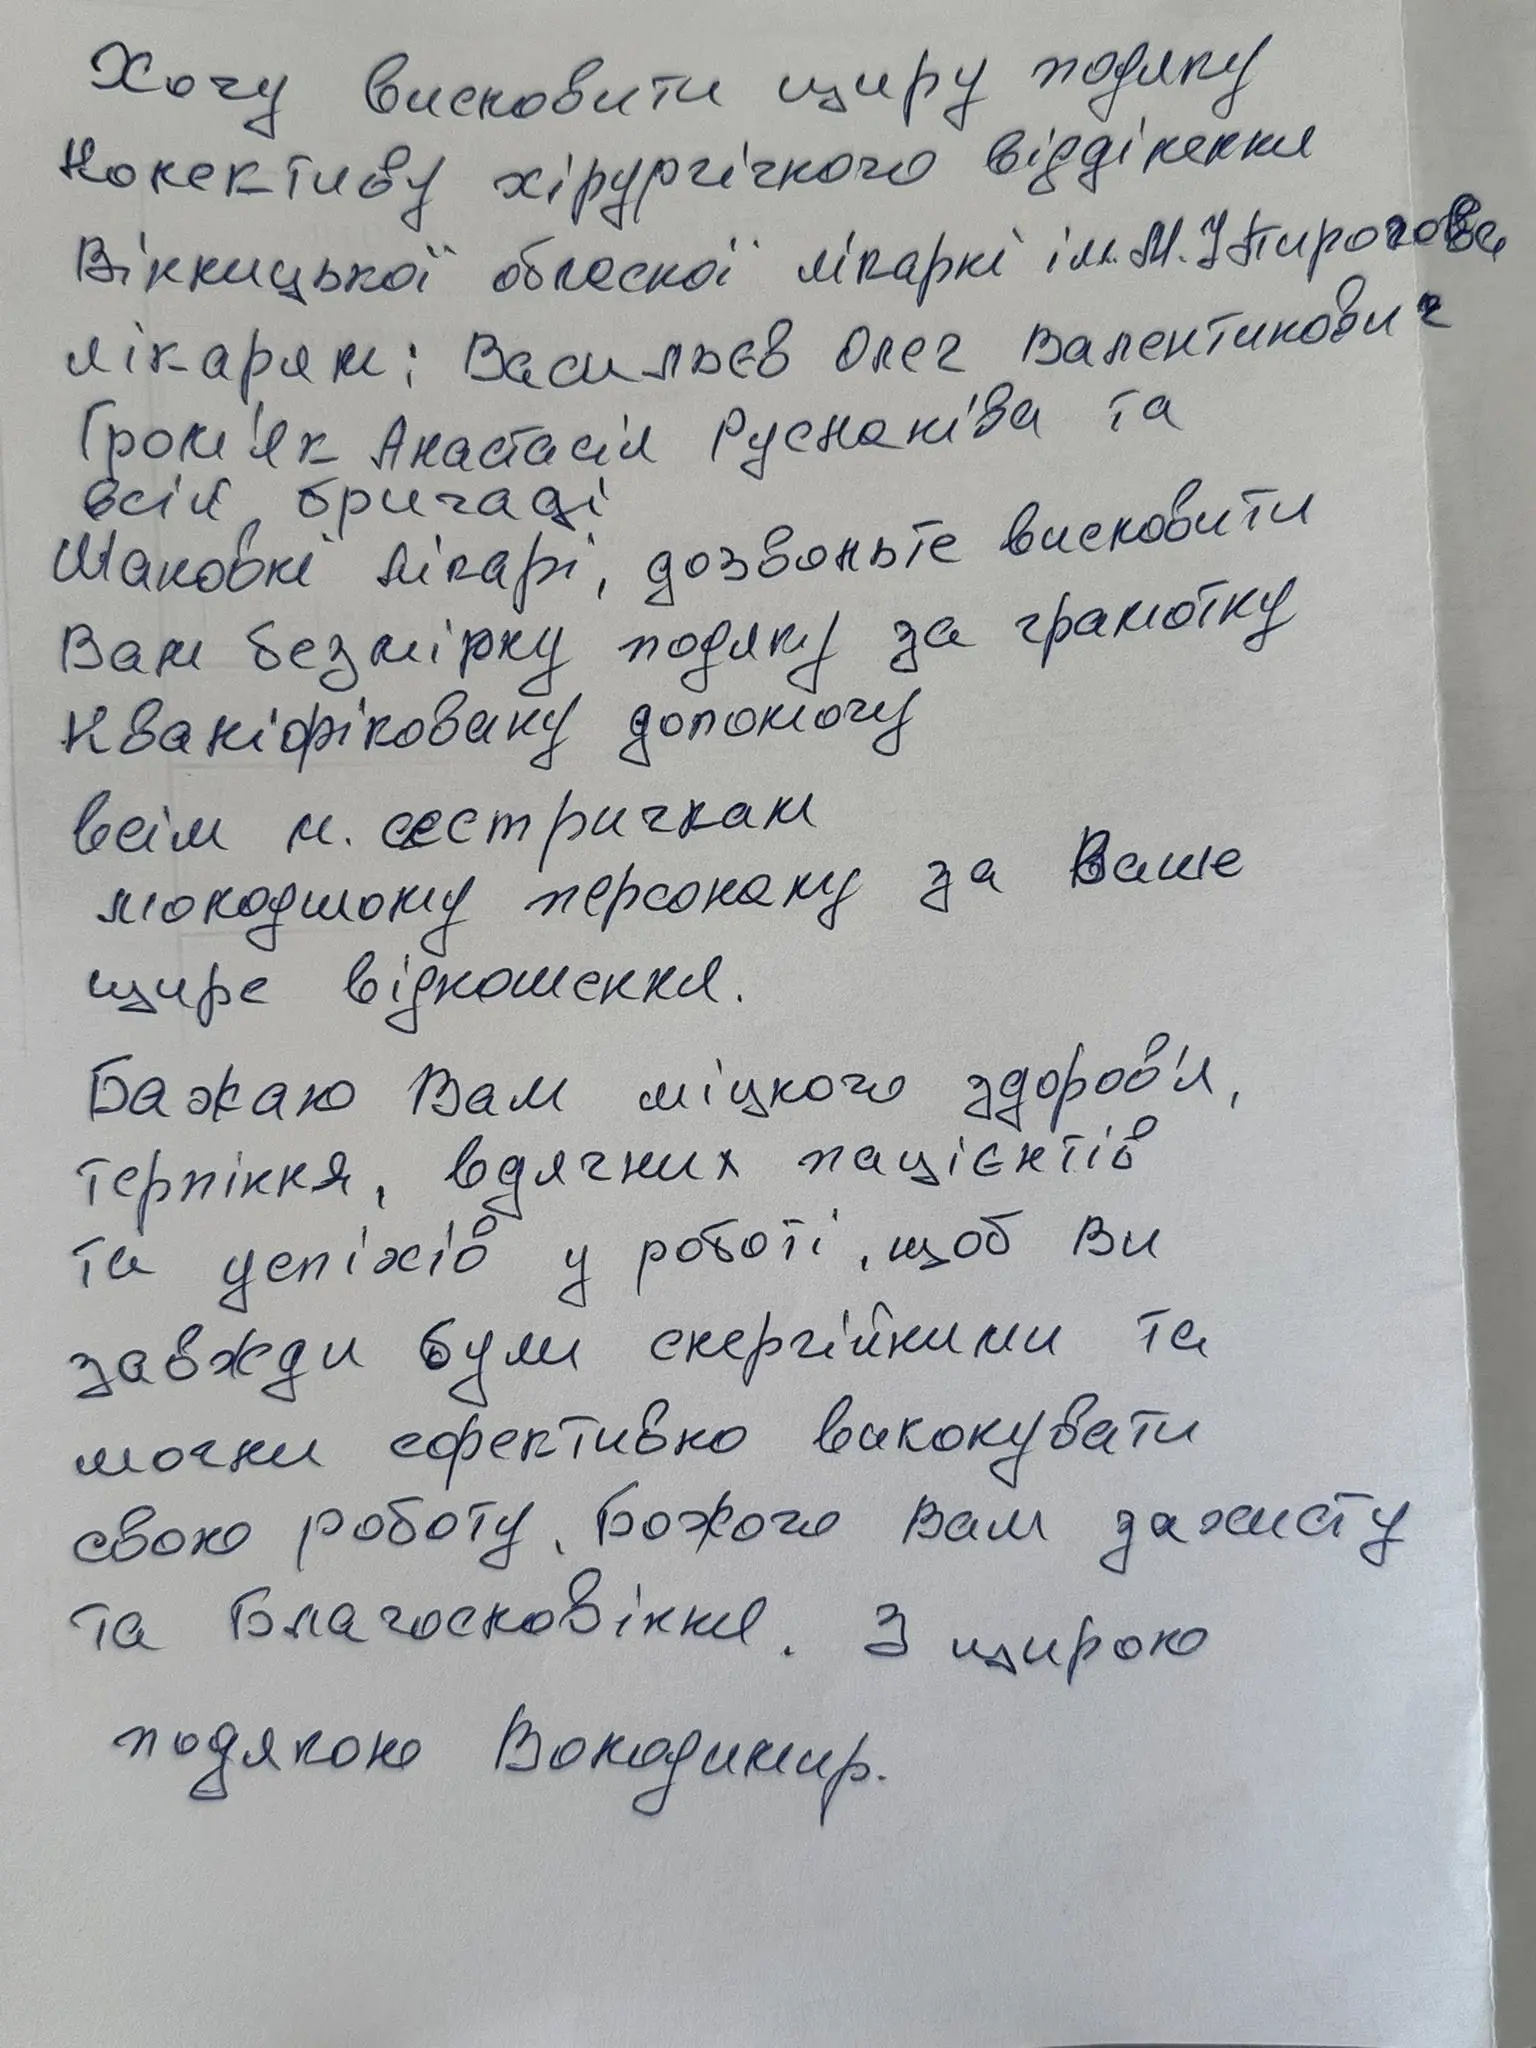 Хочу висловити щиру подяку
Колективу хірургічного відділення
Вінницької обласної лікарні ім. М.І Пирогова
лікарям: Васильєв Олег Валентинович
Гром'як Анастасія Русланівна та
всій бригаді
Шановні лікарі, дозвольте висловити
Вам безмірну подяку за грамотну
Кваліфіковану допомогу
всім м. сестричкам
молодшому персоналу за Ваше
щире відношення.
Бажаю Вам міцного здоров'я,
терпіння, вдячних пацієнтів
та успіхів у роботі, щоб Ви
завжди були енергійними та
могли ефективно виконувати
свою роботу. Божого Вам захисту
та Благословіння. З щирою
подякою Володимир.